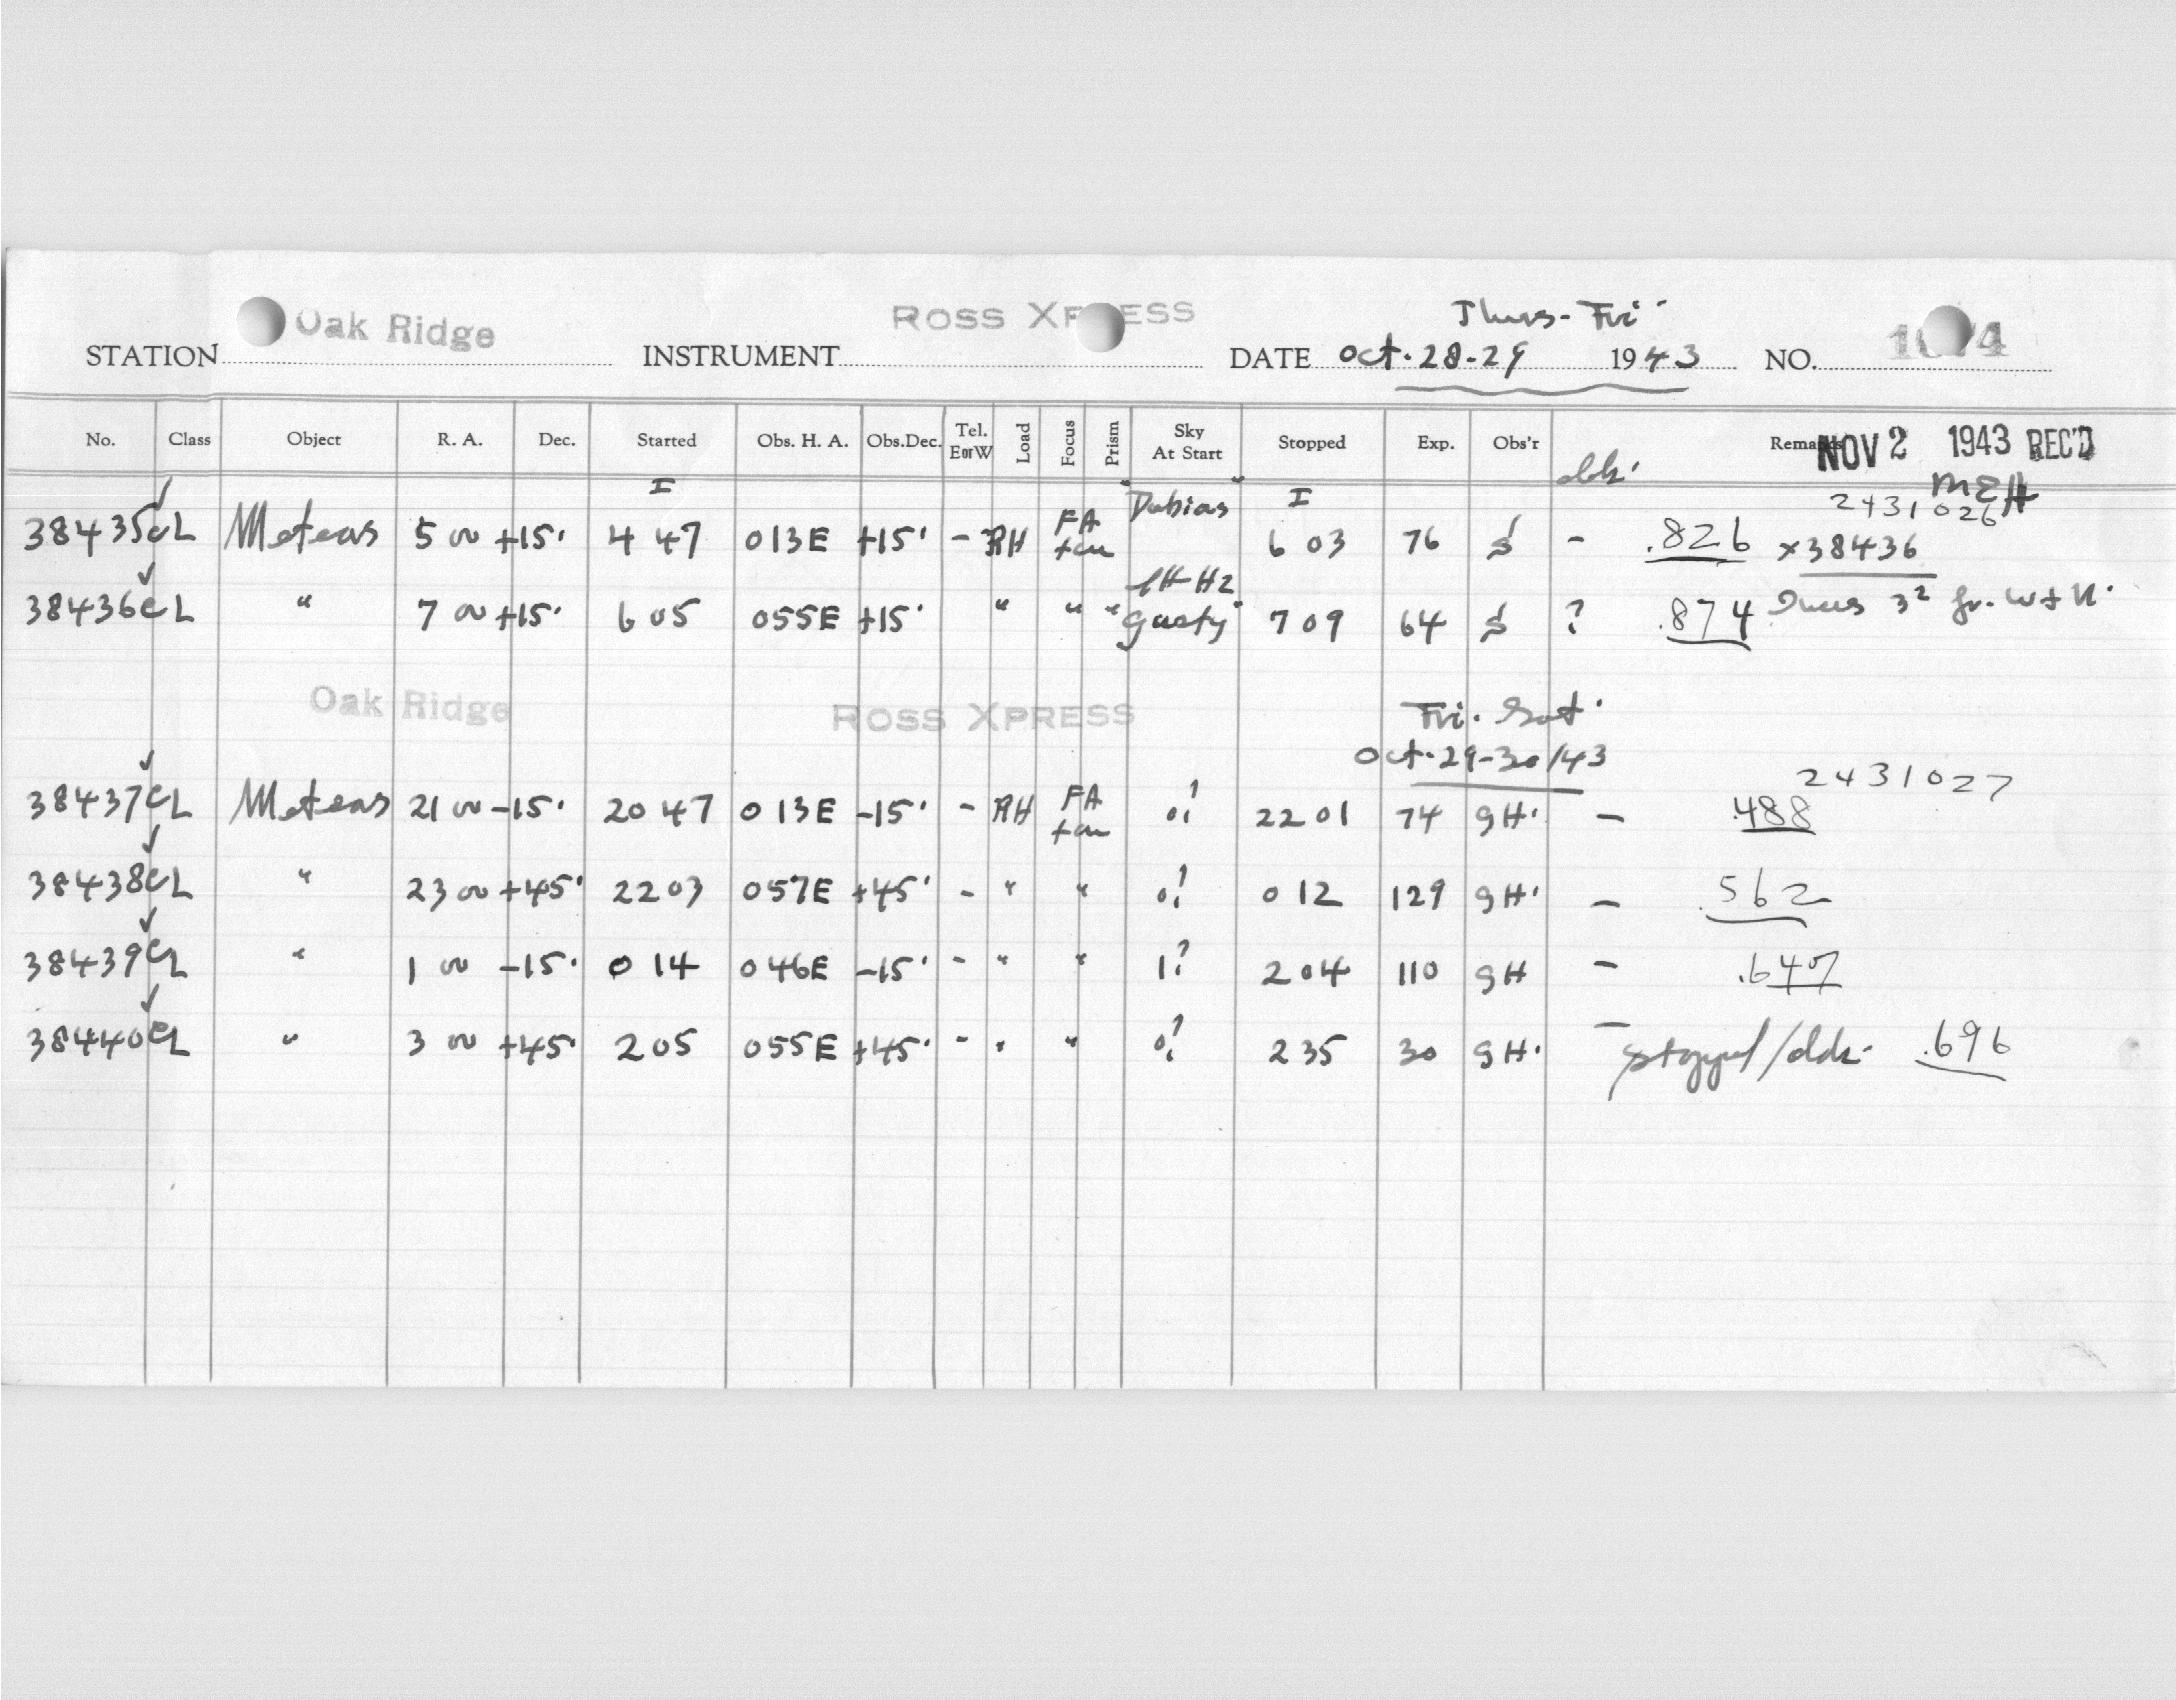 Oak Ridge ROSS XPRESS Thurs-Fri
STATION INSTRUMENT DATE Oct. 28-29 1943 NO.
No. Class Object R. A. Dec. Started Obs. H. A. Obs.Dec. Tel. EorW Load Focus Prism Sky At Start Stopped Exp. Obs'r Remarks NOV 2 1943 REC'D
MEH
I "Dubias" I 2431026
38435 CL Meteors 5 00 +15° 4 47 013E +15° - RH FA 6 03 76 S - .826 x38436
1H H2
38436 CL " 7 00 +15° 6 05 055E +15° " " "Gusty" 7 09 64 S ? .874 3² W + N.
Oak Ridge ROSS XPRESS Fri. Sat.
Oct. 29-30/43
2431027
38437 CL Meteors 21 00 -15° 20 47 013E -15° - RH FA 0? 22 01 74 GH. - .488
38438 CL " 23 00 +45° 22 03 057E +45° - " " 0? 0 12 129 GH. - .562
38439 CL " 1 00 -15° 0 14 046E -15° - " " 1? 2 04 110 GH - .647
38440 CL " 3 00 +45° 2 05 055E +45° - " " 0? 2 35 30 GH. - stopped/ .696